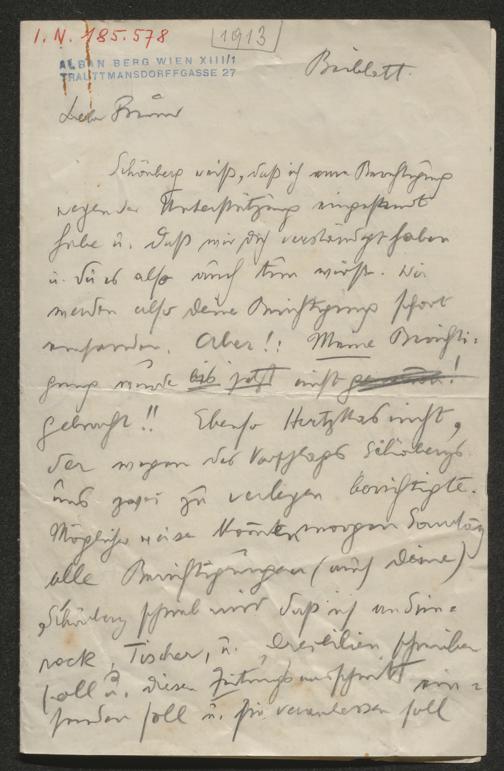 I. N. 185.578
[1913]
ALBAN BERG WIEN XIII/1
TRAUTTMANSDORFFGASSE 27
Beiblatt.
Lieber
Schönberg weiß, daß ich eine Berichtigung
wegen der Unterstützung eingesandt
habe u. daß wir dich verständigt haben
u. du es also auch tun wirst. Wir
werden also deine Berichtigung sofort
einsenden. Aber!! Meine Berichti-
gung wurde bis jetzt nicht
gebracht!! Ebenso Hertzkas nicht,
der wegen des Vorschlags Schönbergs
uns zwei zu verlegen berichtigte.
Möglicherweise morgen Sonntag
alle Berichtigungen (auch deine)
Schönberg schrieb mir daß ich an Sim-
rock, Tischer, u. schreiben
soll u. diesen Zeitungsausschnitt ein-
senden soll u. sie veranlassen soll